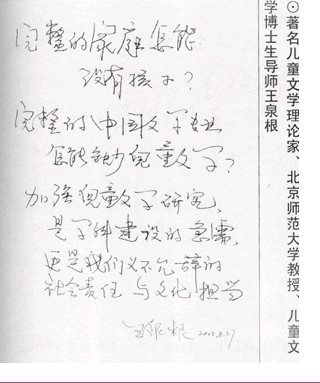 完整的家庭怎能
没有孩子?
完整的中国文学专业
怎能缺少儿童文学?
加强儿童文学研究,
是学科建设的急需,
更是我们义不容辞的
社会责任与文化担当
王泉根 2002.8.27.
⊙著名儿童文学理论家、北京师范大学教授、儿童文
学博士生导师王泉根